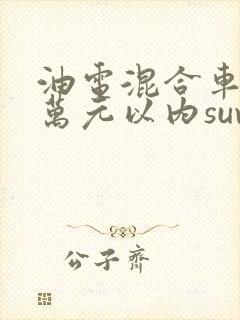 油電混合車
萬元以內su
公子齊